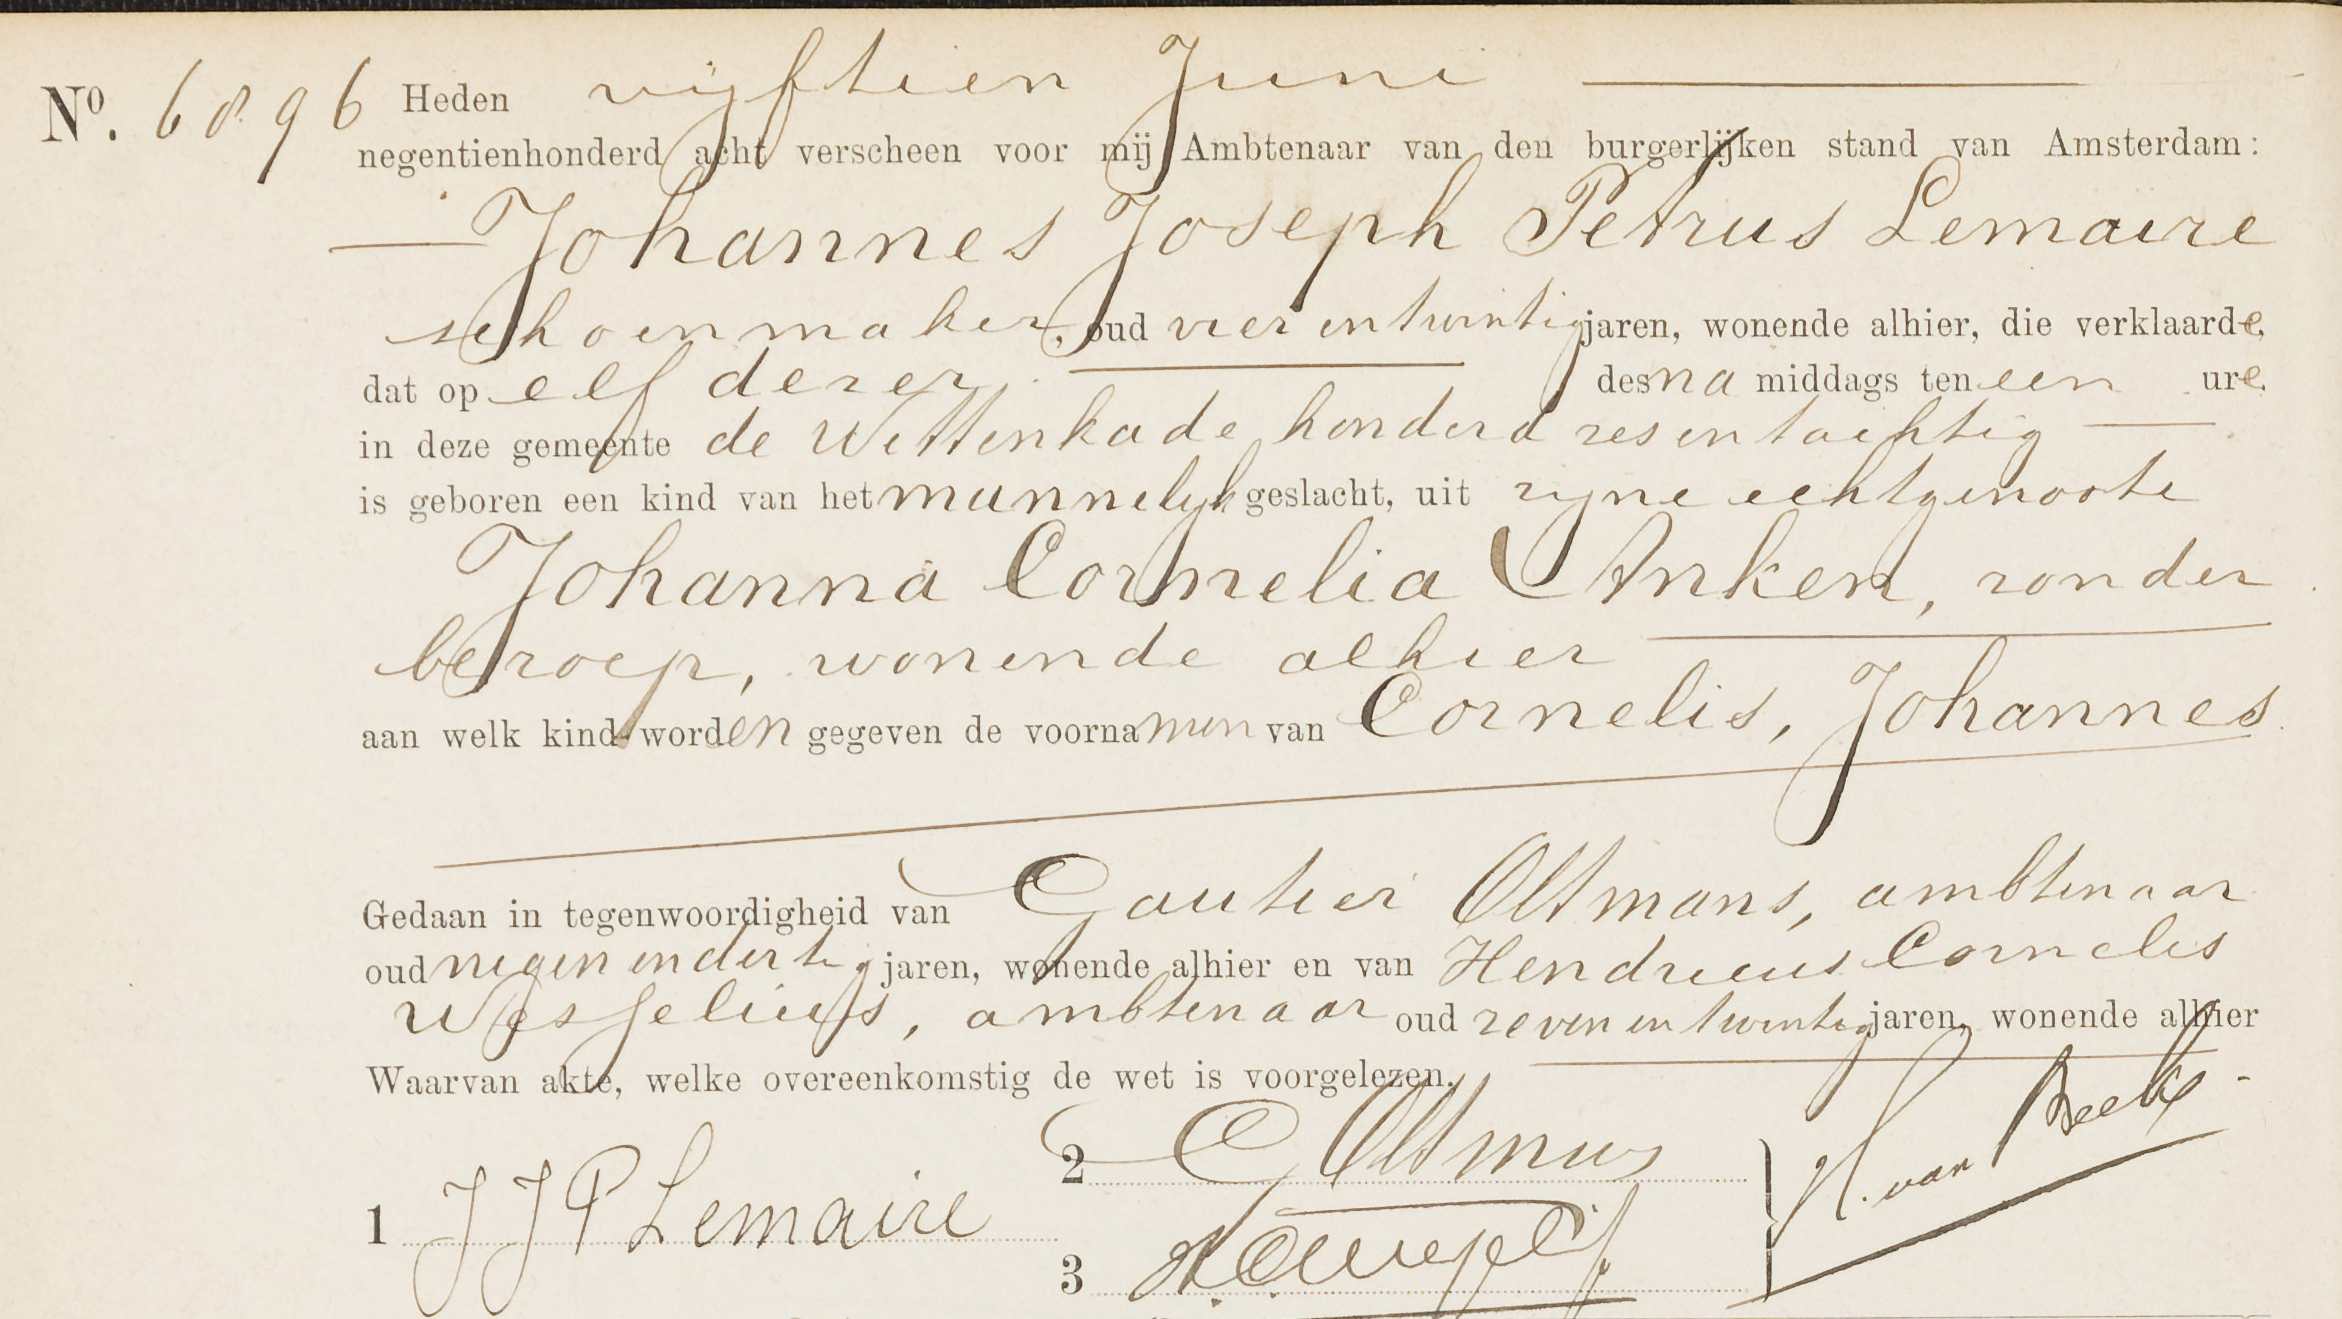 No. 6896 Heden vijftien Juni
negentienhonderd acht verscheen voor mij Ambtenaar van den burgerlijken stand van Amsterdam:
Johannes Joseph Petrus Lemaire
schoenmaker, oud vier en twintig jaren, wonende alhier, die verklaarde,
dat op elf dezer des na middags ten een ure,
in deze gemeente de Wittenkade honderd zes en tachtig
is geboren een kind van het mannelijk geslacht, uit zijne echtgenoote
Johanna Cornelia Anken, zonder
beroep, wonende alhier
aan welk kind worden gegeven de voornamen van Cornelis, Johannes
Gedaan in tegenwoordigheid van Gautier Oltmans, ambtenaar
oud negen en dertig jaren, wonende alhier en van Hendricus Cornelis
Wesselius, ambtenaar oud zeven en twintig jaren, wonende alhier
Waarvan akte, welke overeenkomstig de wet is voorgelezen.
1 J J P Lemaire
2 G Oltmans
3
H. van Beek